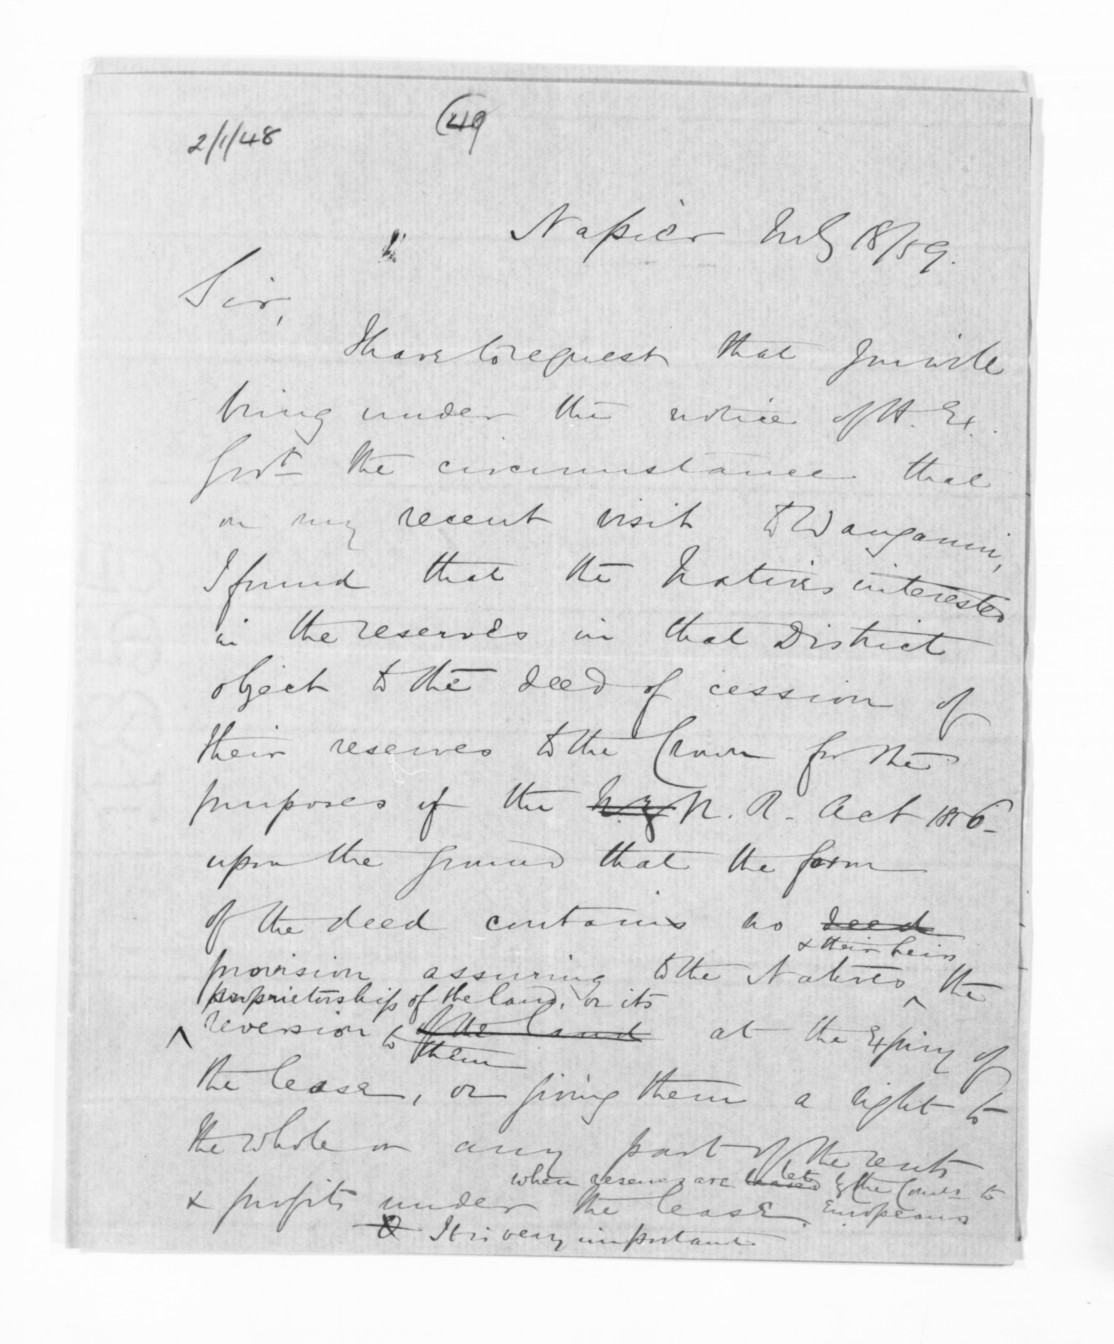 2/1/48
49
Napier July 18/59.
Sir,
I have to request that you will
bring under the notice of H. Ex.
Govt the circumstance that
on my recent visit to Wanganui,
I found that the Natives interested
in the reserves in that District
object to the deed of cession of
their reserves to the Crown for the
purposes of the N.Z. N. R. Act 1856
upon the ground that the form
of the deed contains no deed
& their heirs
provision assuring to the Natives ^ the
proprietorship of the land, or its
^ reversion to of the land at the Expiry of
them
the lease, or giving them a right to
the whole or any part of the rents
when reserves are leased let by the Comrs to
& profits under the lease. Europeans
& It is very important